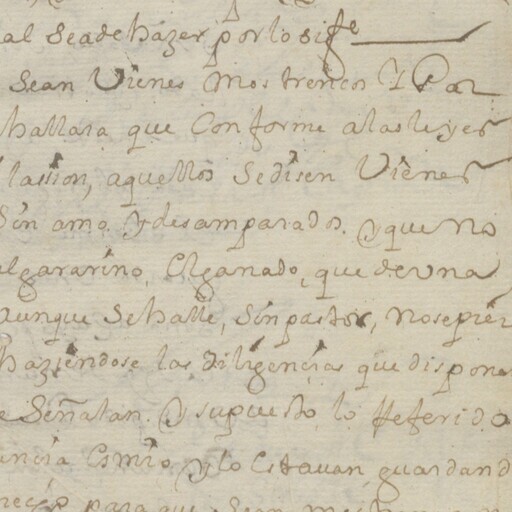 al Seadeházer, por lo sigte
Sean Vienes Mostrencos Y Par
hallara que Conforme alasleyes
lassion, aquellos Sedisen Vienes
Sin amo. Ydesamparados. Yque No
elgararino, Elganado, que deuna
aunque Sehalle, Sinpastor, Nosepier
haziendose las diligencias que dispone
e Señalan. Y supuesto, lo Referido
ancia Esmio, ylo Estauan guardand
para que Sean